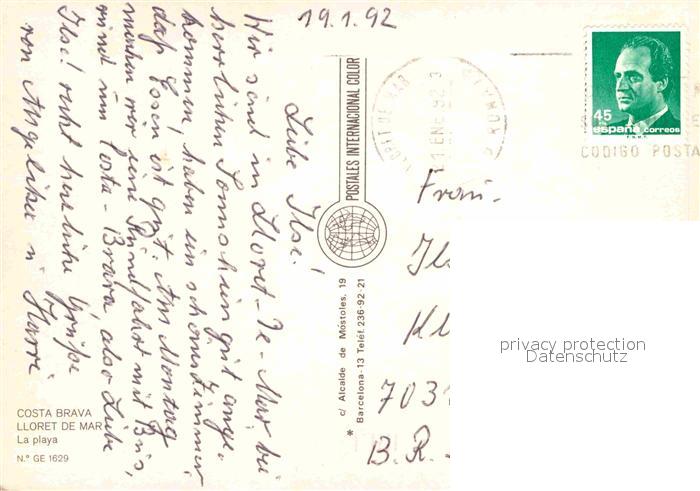 19.1.92
Liebe Ilse!
Wir sind in Lloret-De-Mar bei
herrlichen Sonnschein gut ange-
kommen, haben ein schönes Zimmer
das Essen ist gut. Am Montag
machen wir eine Rundfahrt mit Bus,
rund um Costa-Brava also Liebe
Ilse! recht herzliche Grüße
von Angelika u. Harri
COSTA BRAVA
LLORET DE MAR
La playa
N.º GE 1629
POSTALES INTERNACIONAL COLOR
c/ Alcalde de Móstoles, 19
* Barcelona-13 Teléf. 236-92-21
LLORET DE MAR
21 ENE 92
45
españa correos
F.N.M.T.
CODIGO POSTA
Frau.
Il
Kl
703
B.R.
privacy protection
Datenschutz